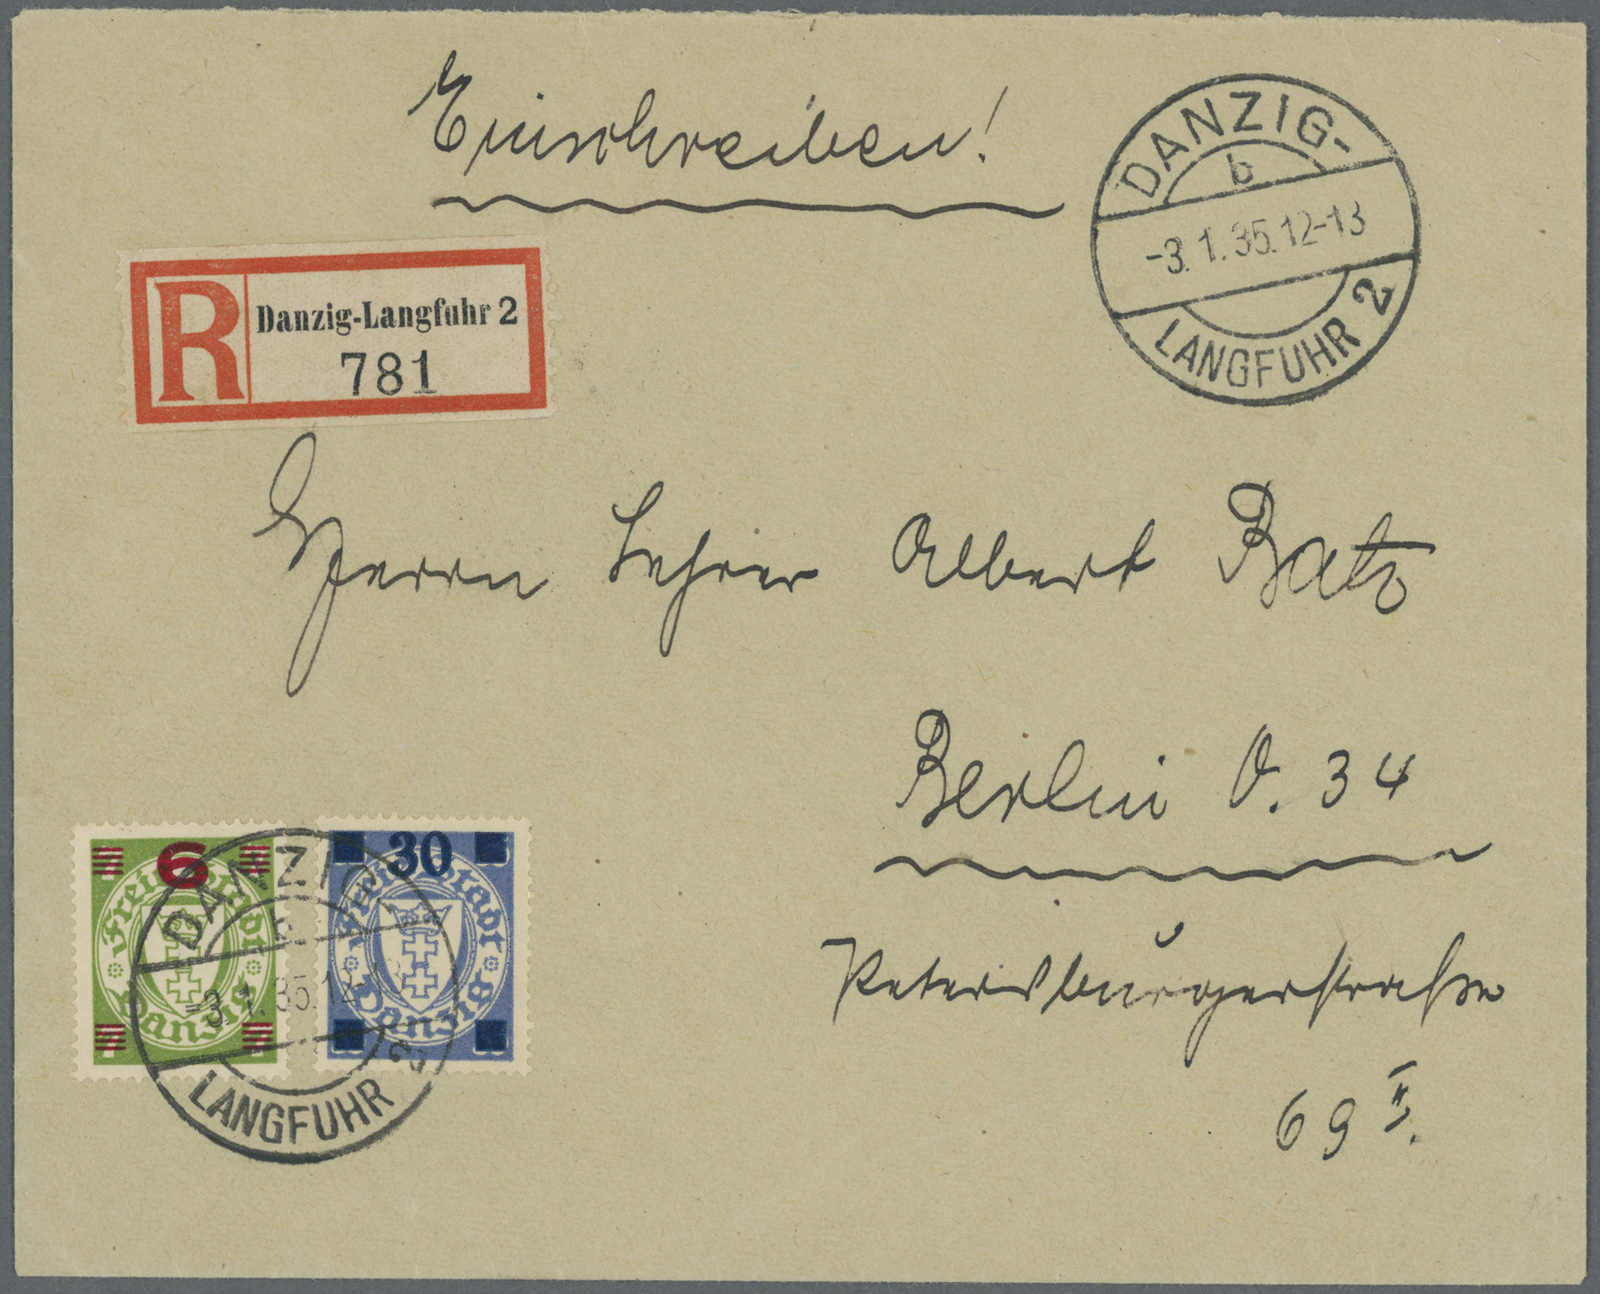 Einschreiben!
DANZIG-
b
-3.1.35.12-13
LANGFUHR 2
R
Danzig-Langfuhr 2
781
Herrn Lehrer Albert Batz
Berlin O. 34
Petersburgerstraße
69 II.
6
Freie Stadt
Danzig
30
Freie Stadt
Danzig
DANZIG
-3.1.35.12-
LANGFUHR